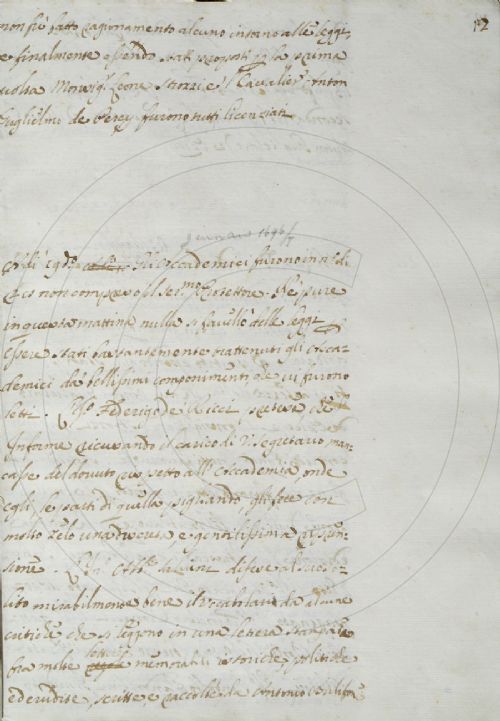 12
non fu fatto ragionamento alcuno intorno alle leggi,
e finalmente essendo stati proposti per la prima
volta Monsig.r Leone Strozzi e il Cavalier Anton
Guglielmo de Percy furono tutti licenziati
Gennaio 1696/7
Adì detto Gli Accademici furono in n.o di
non comparve il Ser.mo Protettore. Nè pure
in questa mattina nulla si favellò delle leggi
essere stati bastantemente trattenuti gli Acca-
demici da bellissimi componimenti, che vi furono
letti. Federigo de Ricci
Informe ricusando il carico di V. Segretario man-
casse del dovuto rispetto all' Accademia, onde
egli le parti di quella pigliando gli fece con
molto zelo una discreta, e gentilissima ripren-
sione. L' Ab.e Salvini difese al suo so-
lito mirabilmente bene il Vocabolario da alcune
critiche che si leggono in una lettera stampata
fra molte lettere memorabili istoriche, politiche
ed erudite, scritte, e raccolte da Antonio Bulifon